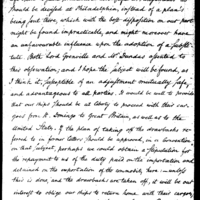 should be desired at Philadelphia, instead of a plan's
being sent there, which with the best disposition on our part
might be found impracticable, and might moreover have
an unfavorable influence upon the adoption of a substi-
tute. Both Lord Grenville and Mr Dundas assented to
this observation; and I hope the subject will be found, as
I think it, susceptible of an adjustment mutually safe
and advantageous to all parties. It would be well to provide
that our ships should be at liberty to proceed with their car-
goes from St. Domingo to Great Britain, as well as to the
United States. If the plan of taking off the drawbacks re-
ferred to in former letters should be approved, in a convention
on that subject, perhaps we could obtain a stipulation for
the repayment to us of the duty paid on the importation and
retained on the exportation of the commodity here:—unless
this is done, and the drawbacks are taken off, it will be our
interest to oblige our ships to return home with their cargoes